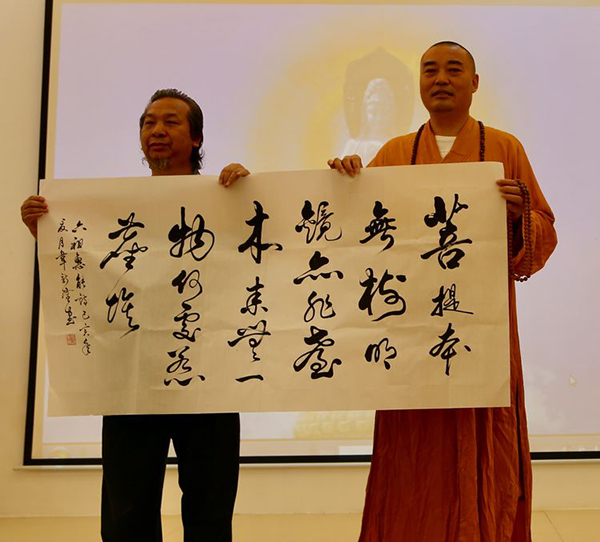 菩提本
無樹明
鏡亦非臺
本来無一
物何處惹
塵埃
六祖惠能詩己亥年
夏月韋書